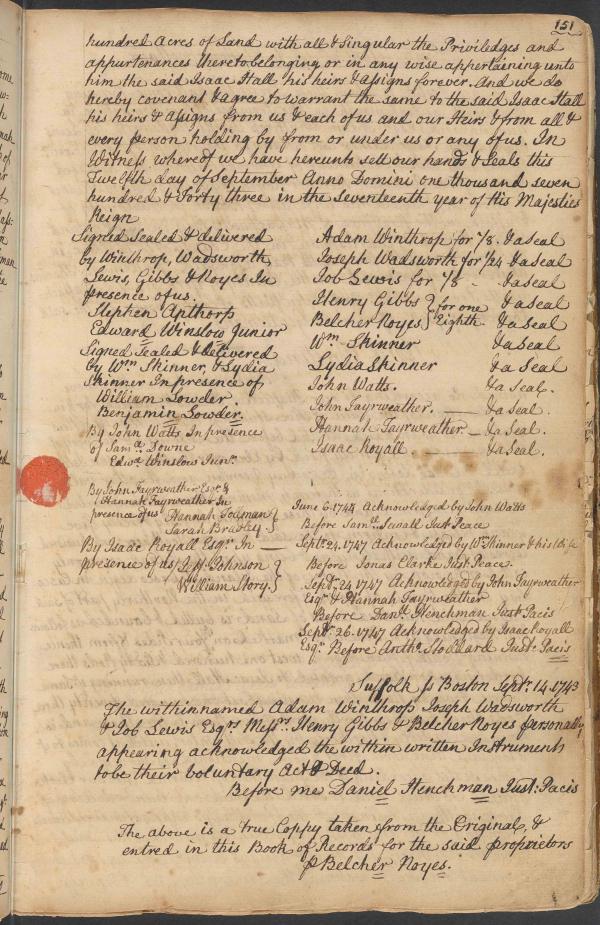 151
hundred Acres of Land with all & Singular the Priviledges and
appurtenances thereto belonging or in any wise appertaining unto
him the said Isaac Hall his heirs & Assigns forever. And we do
hereby covenant & agree to warrant the same to the said Isaac Hall
his heirs & Assigns from us & each of us and our Heirs & from all &
every person holding by from or under us or any of us. In
Witness whereof we have hereunto sett our hands & Seals this
Twelfth day of September Anno Domini one thousand seven
hundred & Forty three in the Seventeenth year of His Majesties
Reign
Signed Sealed & delivered
by Winthrop, Wadsworth
Lewis, Gibbs & Noyes In
presence of us.
Stephen Apthorp
Edward Winslow Junior
Signed Sealed & delivered
by Wm Skinner, & Lydia
Skinner In presence of
William Lowder
Benjamin Lowder.
By John Watts In presence
of Saml Downe
Edwd Winslow Junr.
By John Fayrweather Esqr &
Hannah Fayrweather In
presence of us Hannah Todman
Sarah Bradley
By Isaac Royall Esqr. In
presence of us Johnson
William Story.
Adam Winthrop for 1/8. & a Seal
Joseph Wadsworth for 1/24 & a Seal
Job Lewis for 1/8 - & a Seal
Henry Gibbs } for one & a Seal
Belcher Noyes. } Eighth. & a Seal
Wm Skinner & a Seal
Lydia Skinner & a Seal
John Watts. & a Seal.
John Fayrweather. & a Seal.
Hannah Fayrweather & a Seal.
Isaac Royall & a Seal.
June 6. 1744 Acknowledged by John Watts
Before Saml Sewall Just Peace
Septr. 24. 1747 Acknowledged by Wm Skinner & his Wife
Before Jonas Clarke Just. Peace.
Septr. 24 1747 Acknowledged by John Fayrweather
Esqr & Hannah Fayrweather
Before Danl. Henchman Just Pacis
Septr. 26. 1747 Acknowledged by Isaac Royall
Esqr. Before Antho. Stoddard Just: Pacis
Suffolk ss Boston Septr. 14. 1743
The within named Adam Winthrop Joseph Wadsworth
& Job Lewis Esqrs Messrs. Henry Gibbs & Belcher Noyes personally
appearing acknowledged the within written Instrument
to be their voluntary Act & Deed.
Before me Daniel Henchman Just: Pacis
The above is a true Coppy taken from the Original, &
entred in this Book of Records for the said proprietors
p Belcher Noyes.